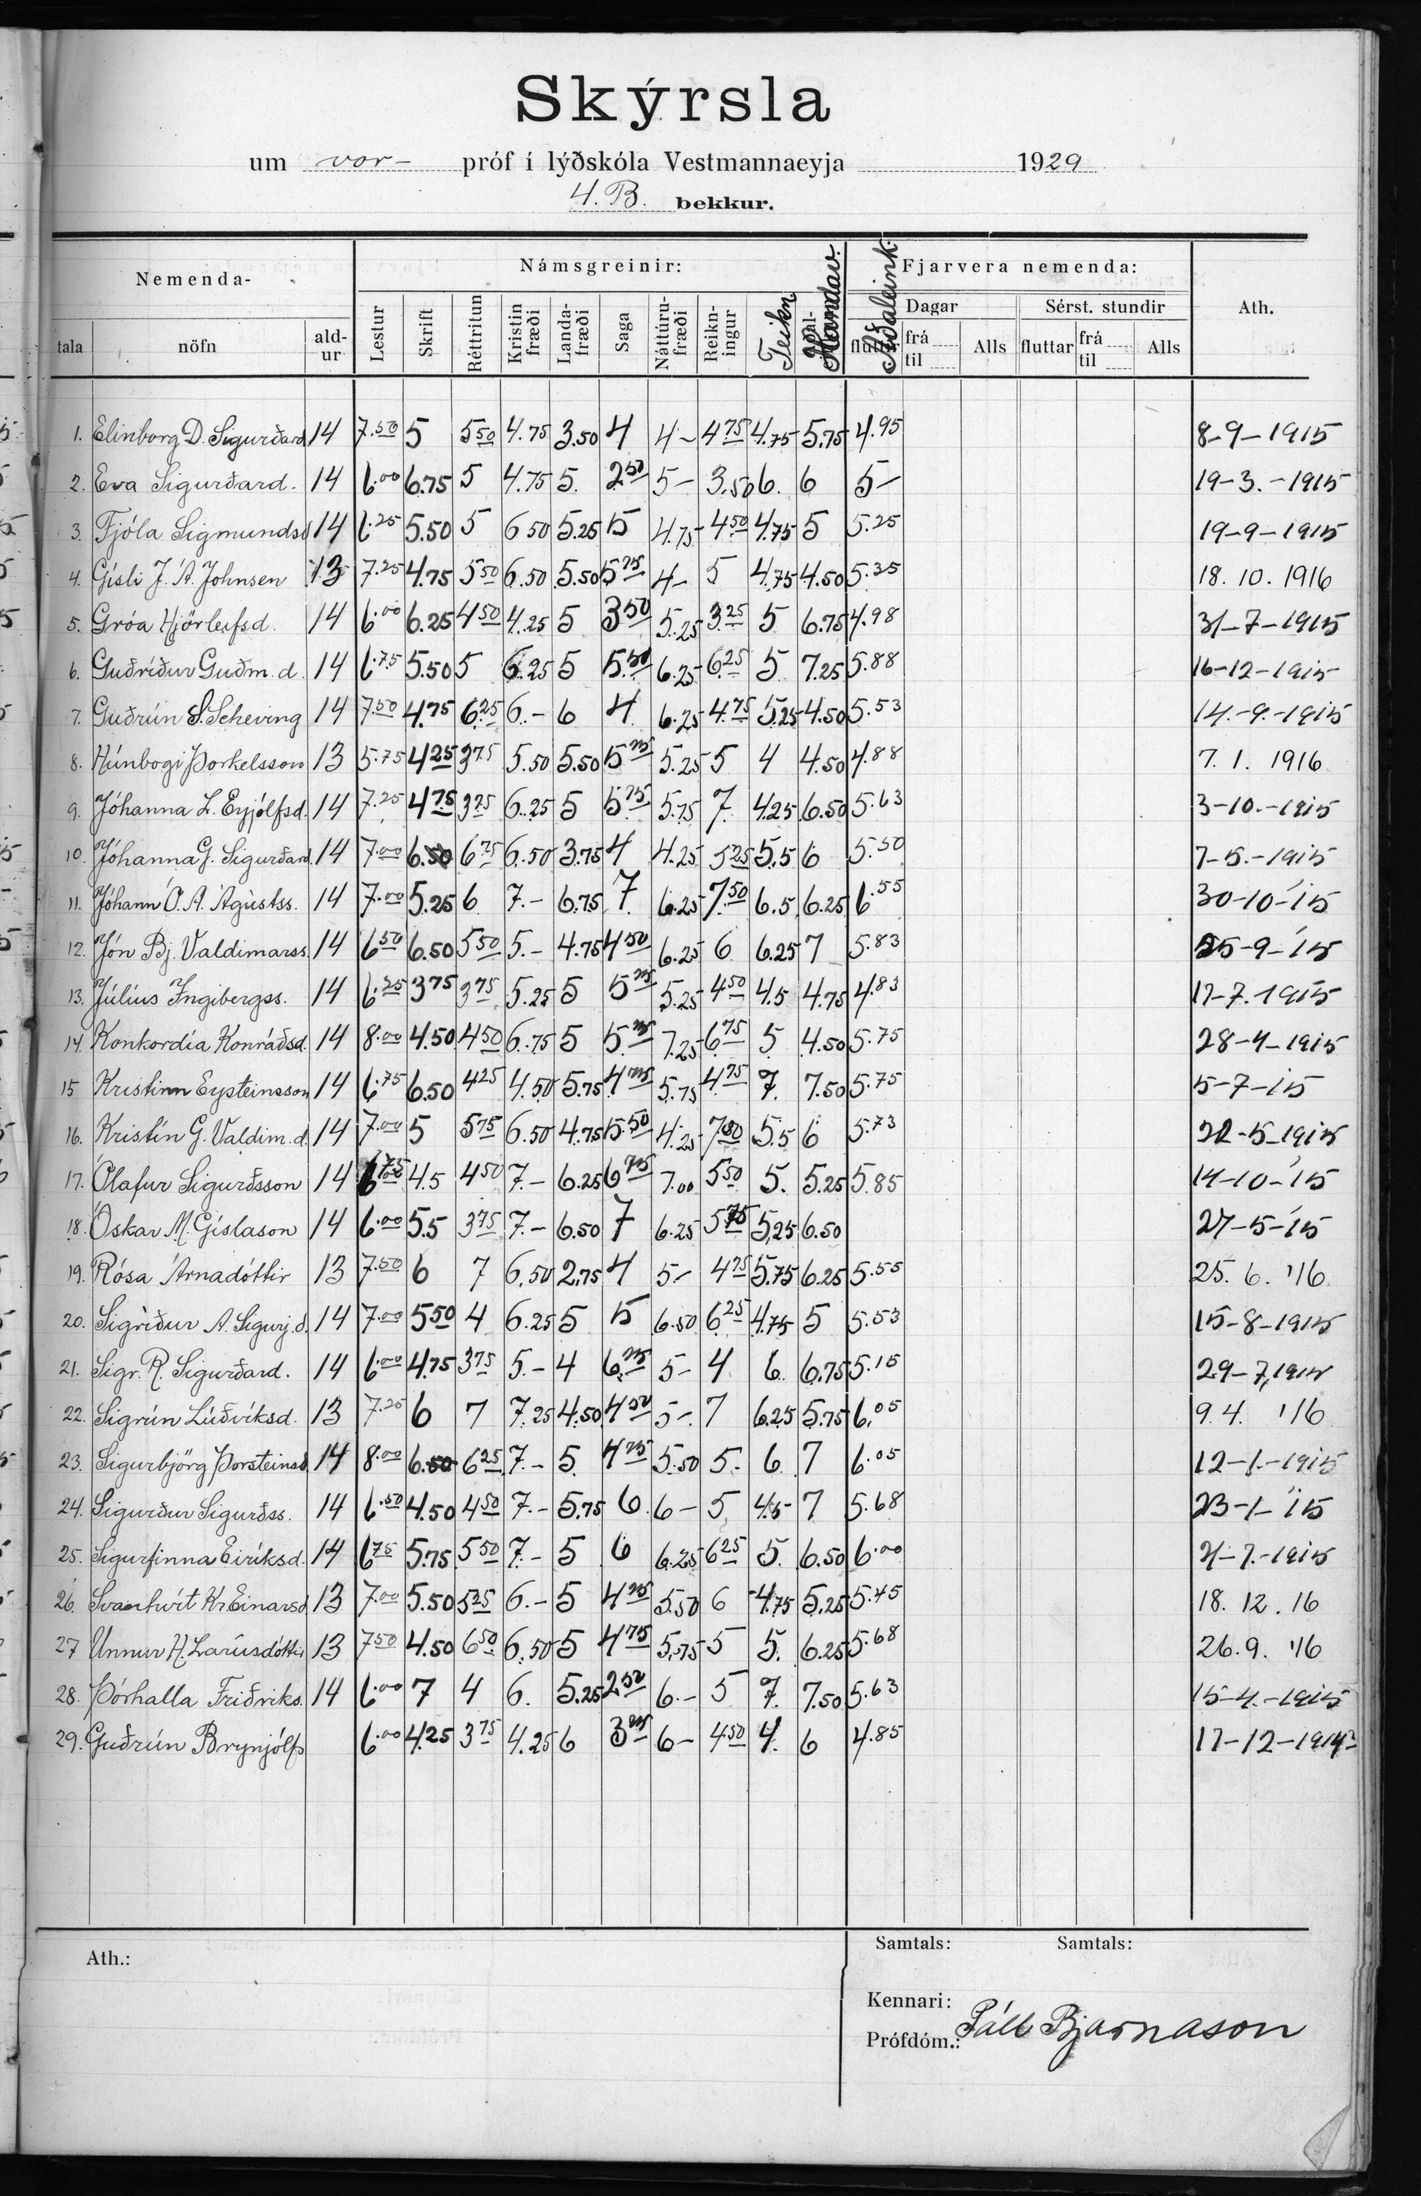 Skýrsla
um vor- próf í lýðskóla Vestmannaeyja 1929
4. B. bekkur.
Nemenda- Námsgreinir: Fjarvera nemenda: Ath.
Dagar Sérst. stundir
tala nöfn ald-ur Lestur Skrift Réttritun Kristin fræði Landa-fræði Saga Náttúru-fræði Reikn-ingur Teikn Handav. Aðaleink. fluttar frá til Alls fluttar frá til Alls
1. Elinborg D. Sigurðard. 14 7.50 5 5.50 4.75 3.50 4 4- 4.75 4.75 5.75 4.95 8-9-1915
2. Eva Sigurðard. 14 6.00 6.75 5 4.75 5. 2.50 5- 3.50 6. 6 5- 19-3.-1915
3. Fjóla Sigmundsd 14 6.25 5.50 5 6 50 5.25 5 4.75 4.50 4.75 5 5.25 19-9-1915
4. Gísli J. Á. Johnsen 13 7.25 4.75 5.50 6.50 5.50 5.75 4- 5 4.75 4.50 5.35 18. 10. 1916
5. Gróa Hjörleifsd. 14 6.00 6.25 4.50 4.25 5 3.50 5.25 3.25 5 6.75 4.98 31-7-1915
6. Guðríður Guðm.d. 14 6.75 5.50 5 6.25 5 5.50 6.25 6.25 5 7.25 5.88 16-12-1915
7. Guðrún S. Scheving 14 7.50 4.75 6.25 6.- 6 4 6.25 4.75 5.25 4.50 5.53 14.-9.-1915
8. Húnbogi Þorkelsson 13 5.75 4.25 3.75 5.50 5.50 5.75 5.25 5 4 4.50 4.88 7. 1. 1916
9. Jóhanna L. Eyjólfsd. 14 7.25 4.75 3.75 6.25 5 5.75 5.75 7 4.25 6.50 5.63 3-10.-1915
10. Jóhanna G. Sigurðard. 14 7.00 6.50 6.75 6.50 3.75 4 4.25 5.25 5.5 6 5.50 7-5.-1915
11. Jóhann Ó. Á. Ágústss. 14 7.00 5.25 6 7.- 6.75 7 6.25 7.50 6.5 6.25 6.55 30-10-'15
12. Jón Bj. Valdimarss. 14 6.50 6.50 5.50 5.- 4.75 4.50 6.25 6 6.25 7 5.83 25-9-'15
13. Júlíus Ingibergss. 14 6.25 3.75 3.75 5.25 5 5.75 5.25 4.50 4.5 4.75 4.83 17-7.1915
14. Konkordía Konráðsd. 14 8.00 4.50 4.50 6.75 5 5.75 7.25 6.75 5 4.50 5.75 28-4-1915
15 Kristinn Eysteinsson 14 6.75 6.50 4.25 4.50 5.75 4.75 5.75 4.75 7. 7.50 5.75 5-7-'15
16. Kristín G. Valdim.d. 14 7.00 5 5.75 6.50 4.75 5.50 4.25 7.50 5.5 6 5.73 22-5-1915
17. Ólafur Sigurðsson 14 6.75 4.5 4.50 7.- 6.25 6.75 7.00 5.50 5. 5.25 5.85 14-10-'15
18. Óskar M. Gíslason 14 6.00 5.5 3.75 7.- 6.50 7 6.25 5.75 5.25 6.50 27-5-'15
19. Rósa Árnadóttir 13 7.50 6 7 6.50 2.75 4 5- 4.75 5.75 6.25 5.55 25. 6. '16
20. Sigríður A. Sigurj.d. 14 7.00 5.50 4 6.25 5 5 6.50 6.25 4.75 5 5.53 15-8-1915
21. Sigr. R. Sigurðard. 14 6.00 4.75 3.75 5.- 4 6.75 5- 4 6. 6.75 5.15 29-7,1915
22. Sigrún Lúðvíksd. 13 7.25 6 7 7.25 4.50 4.50 5-. 7 6.25 5.75 6.05 9. 4. '16
23. Sigurbjörg Þorsteinsd. 14 8.00 6.50 6.25 7.- 5 4.75 5.50 5- 6 7 6.05 12-1.-1915
24. Sigurður Sigurðss. 14 6.50 4.50 4.50 7.- 5.75 6. 6- 5 4.5- 7 5.68 23-1-'15
25. Sigurfinna Eiríksd. 14 6.75 5.75 5.50 7.- 5 6 6.25 6.25 5. 6.50 6.00 21-7.-1915
26. Svanhvít Kr Einarsd 13 7.00 5.50 5.25 6.- 5 4.75 5.50 6 4.75 5.25 5.45 18. 12. 16
27 Unnur H. Lárúsdóttir 13 7.50 4.50 6.50 6.50 5 4.75 5.75 5 5. 6.25 5.68 26. 9. '16
28. Þórhalla Friðriks. 14 6.00 7 4 6. 5.25 2.50 6.- 5 7. 7.50 5.63 15-4.-1915
29. Guðrún Brynjólfs 6.00 4.25 3.75 4.25 6 3.75 6- 4.50 4. 6 4.85 17-12-1914?
Ath.: Samtals: Samtals:
Kennari:
Prófdóm.: Páll Bjarnason